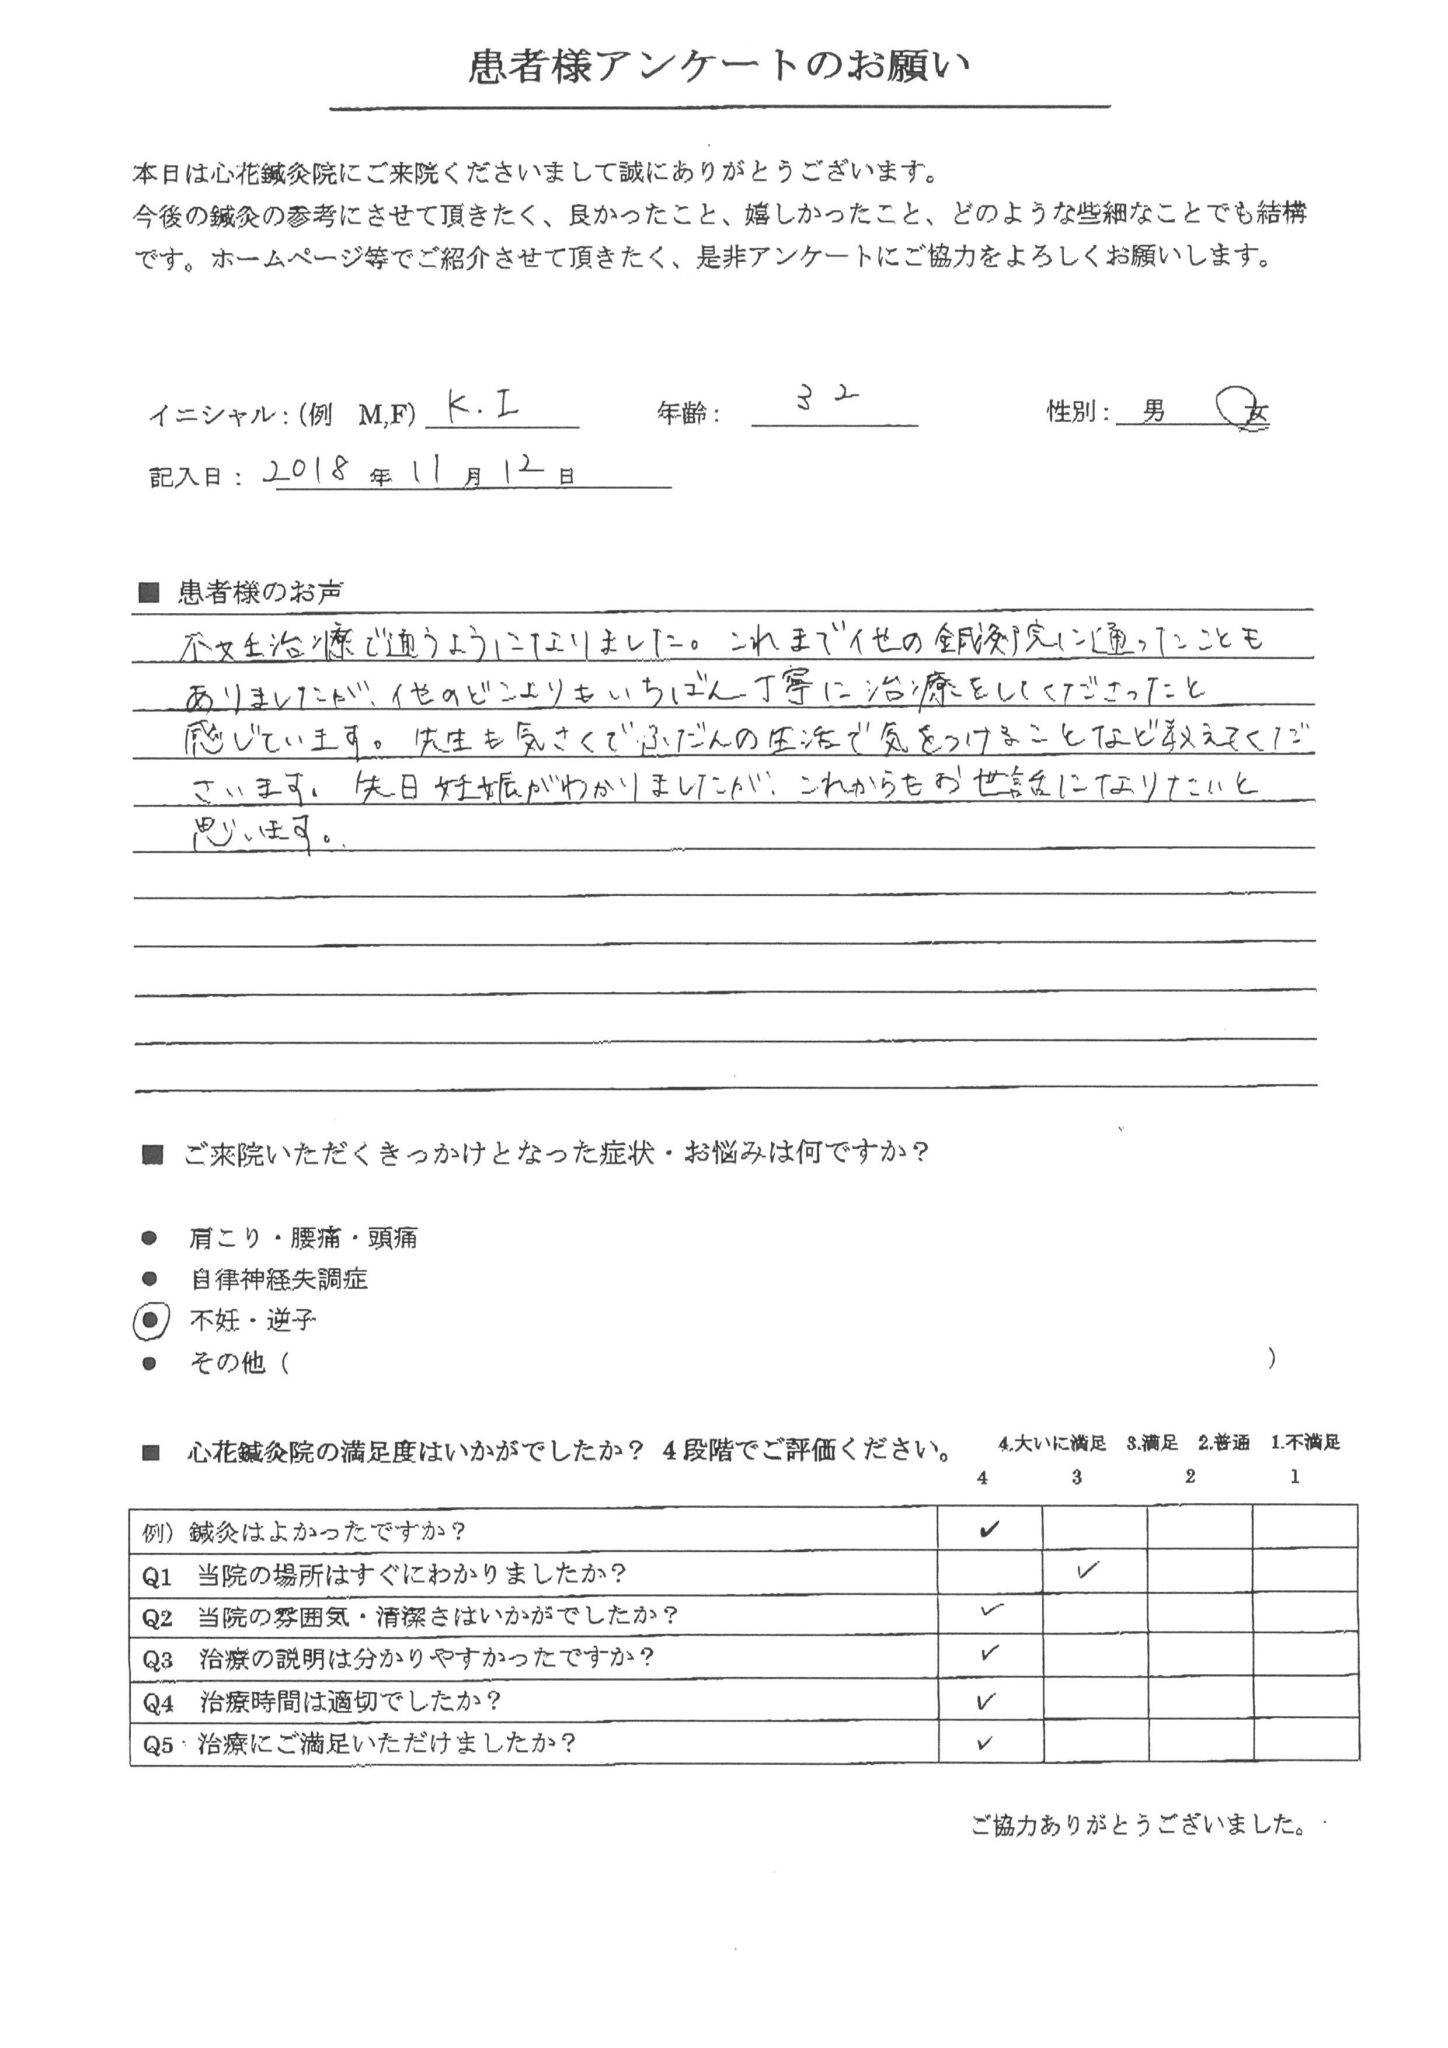 患者様アンケートのお願い
本日は心花鍼灸院にご来院くださいまして誠にありがとうございます。
今後の鍼灸の参考にさせて頂きたく、良かったこと、嬉しかったこと、どのような些細なことでも結構
です。ホームページ等でご紹介させて頂きたく、是非アンケートにご協力をよろしくお願いします。
イニシャル:(例 M,F) K.I 年齢: 32 性別: 男 女
記入日: 2018 年 11 月 12 日
■ 患者様のお声
不妊治療で通うようになりました。これまで他の鍼灸院に通ったことも
ありましたが、他のどこよりもいちばん丁寧に治療をしてくださったと
感じています。先生も気さくでふだんの生活で気をつけることなど教えてくだ
さいます。先日妊娠がわかりましたが、これからもお世話になりたいと
思います。
■ ご来院いただくきっかけとなった症状・お悩みは何ですか?
● 肩こり・腰痛・頭痛
● 自律神経失調症
● 不妊・逆子
● その他 ( )
■ 心花鍼灸院の満足度はいかがでしたか? 4段階でご評価ください。 4.大いに満足 3.満足 2.普通 1.不満足
4 3 2 1
例) 鍼灸はよかったですか? ✓
Q1 当院の場所はすぐにわかりましたか? ✓
Q2 当院の雰囲気・清潔さはいかがでしたか? ✓
Q3 治療の説明は分かりやすかったですか? ✓
Q4 治療時間は適切でしたか? ✓
Q5 治療にご満足いただけましたか? ✓
ご協力ありがとうございました。